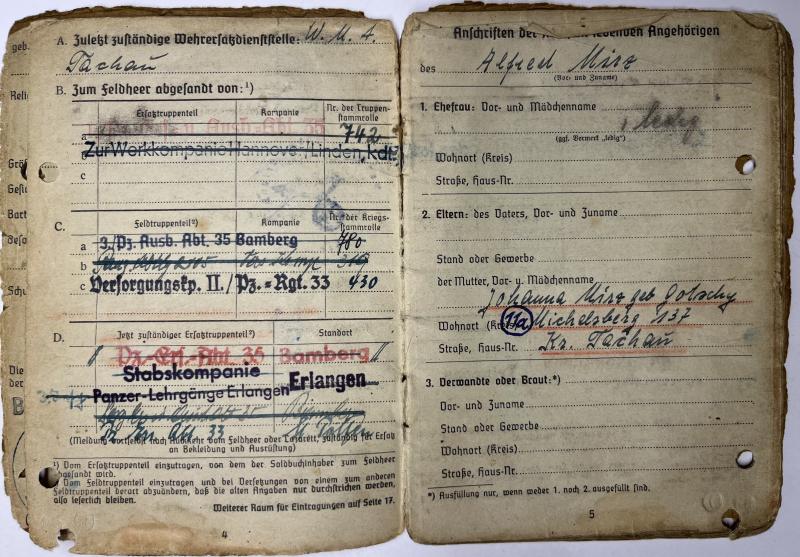 geb.
Reli
Größ
Gest
Bart
Beso
Schu
Die
der
B
A. Zuletzt zuständige Wehrersatzdienststelle: W. M. A.
Tachau
B. Zum Feldheer abgesandt von:¹)
Ersatztruppenteil Kompanie Nr. der Truppen-
stammrolle
a Ausb.-Abt. 35 742
b Zur Werkkompanie Hannover/Linden, Kdt.
c
C. Feldtruppenteil²) Kompanie Nr. der Kriegs-
stammrolle
a 3./Pz. Ausb. Abt. 35 Bamberg 780
b
c Versorgungskp. II./Pz.-Rgt. 33 430
D. Jetzt zuständiger Ersatztruppenteil²) Standort
Pz.-Ers.-Abt. 35 Bamberg
Stabskompanie
Panzer-Lehrgänge Erlangen Erlangen
33
(Meldung dortselbst nach Rückkehr vom Feldheer oder Lazarett, zuständig für Ersatz
an Bekleidung und Ausrüstung)
¹) Vom Ersatztruppenteil einzutragen, von dem der Soldbuchinhaber zum Feldheer
abgesandt wird.
²) Vom Feldtruppenteil einzutragen und bei Versetzungen von einem zum anderen
Feldtruppenteil derart abzuändern, daß die alten Angaben nur durchstrichen werden,
also leserlich bleiben.
Weiterer Raum für Eintragungen auf Seite 17.
4
Anschriften der lebenden Angehörigen
des Alfred Mirz
(Vor- und Zuname)
1. Ehefrau: Vor- und Mädchenname
ledig
(ggf. Vermerk „ledig“)
Wohnort (Kreis)
Straße, Haus-Nr.
2. Eltern: des Vaters, Vor- und Zuname
Stand oder Gewerbe
der Mutter, Vor- u. Mädchenname
Johanna Mirz geb
Wohnort (Kreis) 11a Michelsberg 137
Straße, Haus-Nr. Kr. Tachau
3. Verwandte oder Braut:*)
Vor- und Zuname
Stand oder Gewerbe
Wohnort (Kreis)
Straße, Haus-Nr.
*) Ausfüllung nur, wenn weder 1. noch 2. ausgefüllt sind.
5